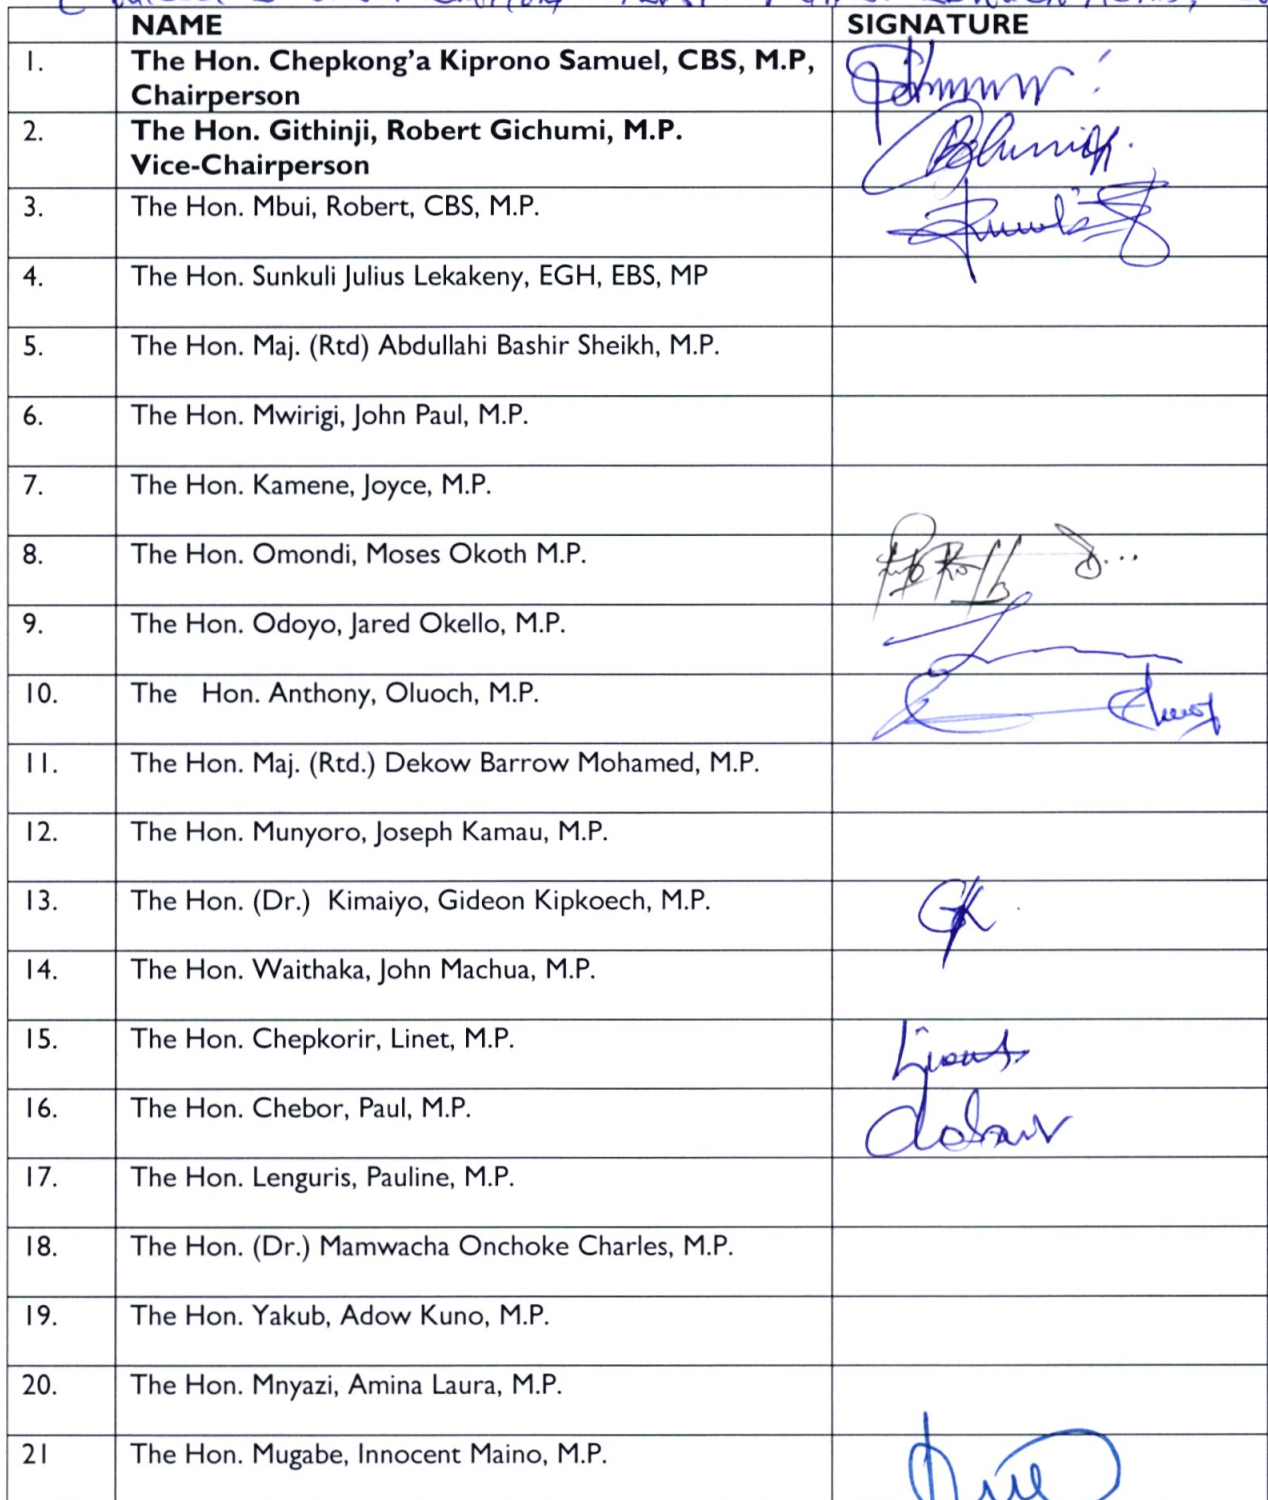 NAME SIGNATURE
1. The Hon. Chepkong’a Kiprono Samuel, CBS, M.P,
Chairperson
2. The Hon. Githinji, Robert Gichumi, M.P.
Vice-Chairperson
3. The Hon. Mbui, Robert, CBS, M.P.
4. The Hon. Sunkuli Julius Lekakeny, EGH, EBS, MP
5. The Hon. Maj. (Rtd) Abdullahi Bashir Sheikh, M.P.
6. The Hon. Mwirigi, John Paul, M.P.
7. The Hon. Kamene, Joyce, M.P.
8. The Hon. Omondi, Moses Okoth M.P.
9. The Hon. Odoyo, Jared Okello, M.P.
10. The Hon. Anthony, Oluoch, M.P.
11. The Hon. Maj. (Rtd.) Dekow Barrow Mohamed, M.P.
12. The Hon. Munyoro, Joseph Kamau, M.P.
13. The Hon. (Dr.) Kimaiyo, Gideon Kipkoech, M.P. GK
14. The Hon. Waithaka, John Machua, M.P.
15. The Hon. Chepkorir, Linet, M.P.
16. The Hon. Chebor, Paul, M.P.
17. The Hon. Lenguris, Pauline, M.P.
18. The Hon. (Dr.) Mamwacha Onchoke Charles, M.P.
19. The Hon. Yakub, Adow Kuno, M.P.
20. The Hon. Mnyazi, Amina Laura, M.P.
21 The Hon. Mugabe, Innocent Maino, M.P.